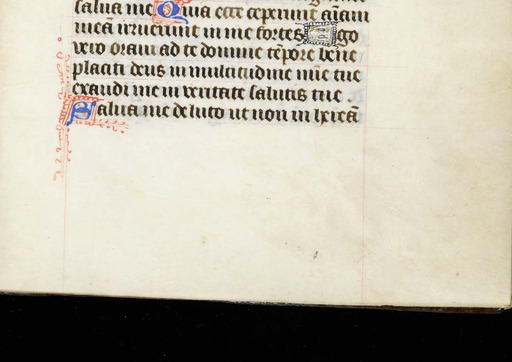 salua me Quia ecce ceperunt aīam
meā irruerunt in me fortes Ego
vero oram ad te domine tēpore bene
placiti deus in multitudine mīe tue
exaudi me in veritate salutis tue
Salua me de luto ut non in